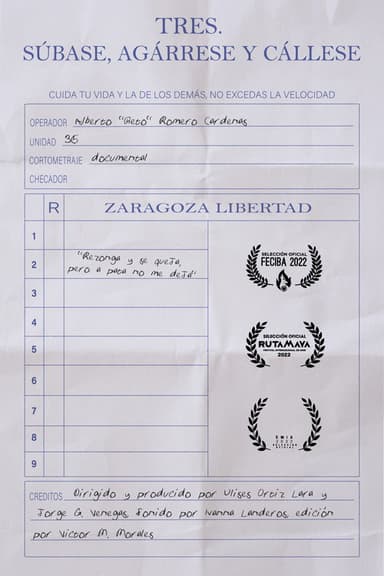 TRES.
SÚBASE, AGÁRRESE Y CÁLLESE
CUIDA TU VIDA Y LA DE LOS DEMÁS, NO EXCEDAS LA VELOCIDAD
OPERADOR Alberto "Beto" Romero Cardenas
UNIDAD 35
CORTOMETRAJE documental
CHECADOR
R ZARAGOZA LIBERTAD
1
2 "Rezonga y se queja,
pero a pata no me deja"
3
4
5
6
7
8
9
SELECCIÓN OFICIAL
FECIBA 2022
SELECCIÓN OFICIAL
RUTAMAYA
2022
CREDITOS Dirigido y producido por Ulises Ortiz Lara y
Jorge G. Venegas, sonido por Ivanna Landeros, edición
por Victor M. Morales